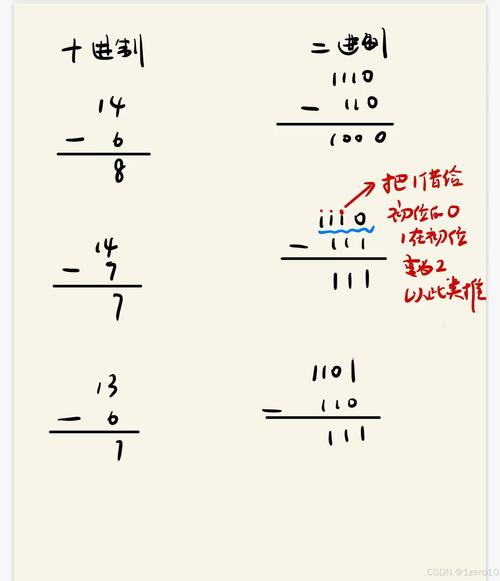 十进制
14
- 6
8
14
- 7
7
13
- 6
7
二进制
1110
- 110
1000
1110
- 111
111
把1借给
初位的0
1在初位
变为2
以此类推
1101
- 110
111
CSDN @1zero10